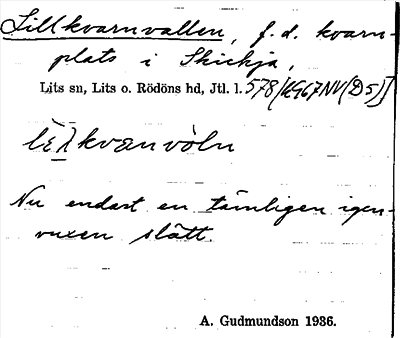 Lillkvarnvallen, f.d. kvarn-
plats i Skickja,
Lits sn, Lits o. Rödöns hd, Jtl. l. 578/KG67NV(D5)]
kvænvòln
Nu endast en tämligen igen-
vuxen slått.
A. Gudmundson 1936.